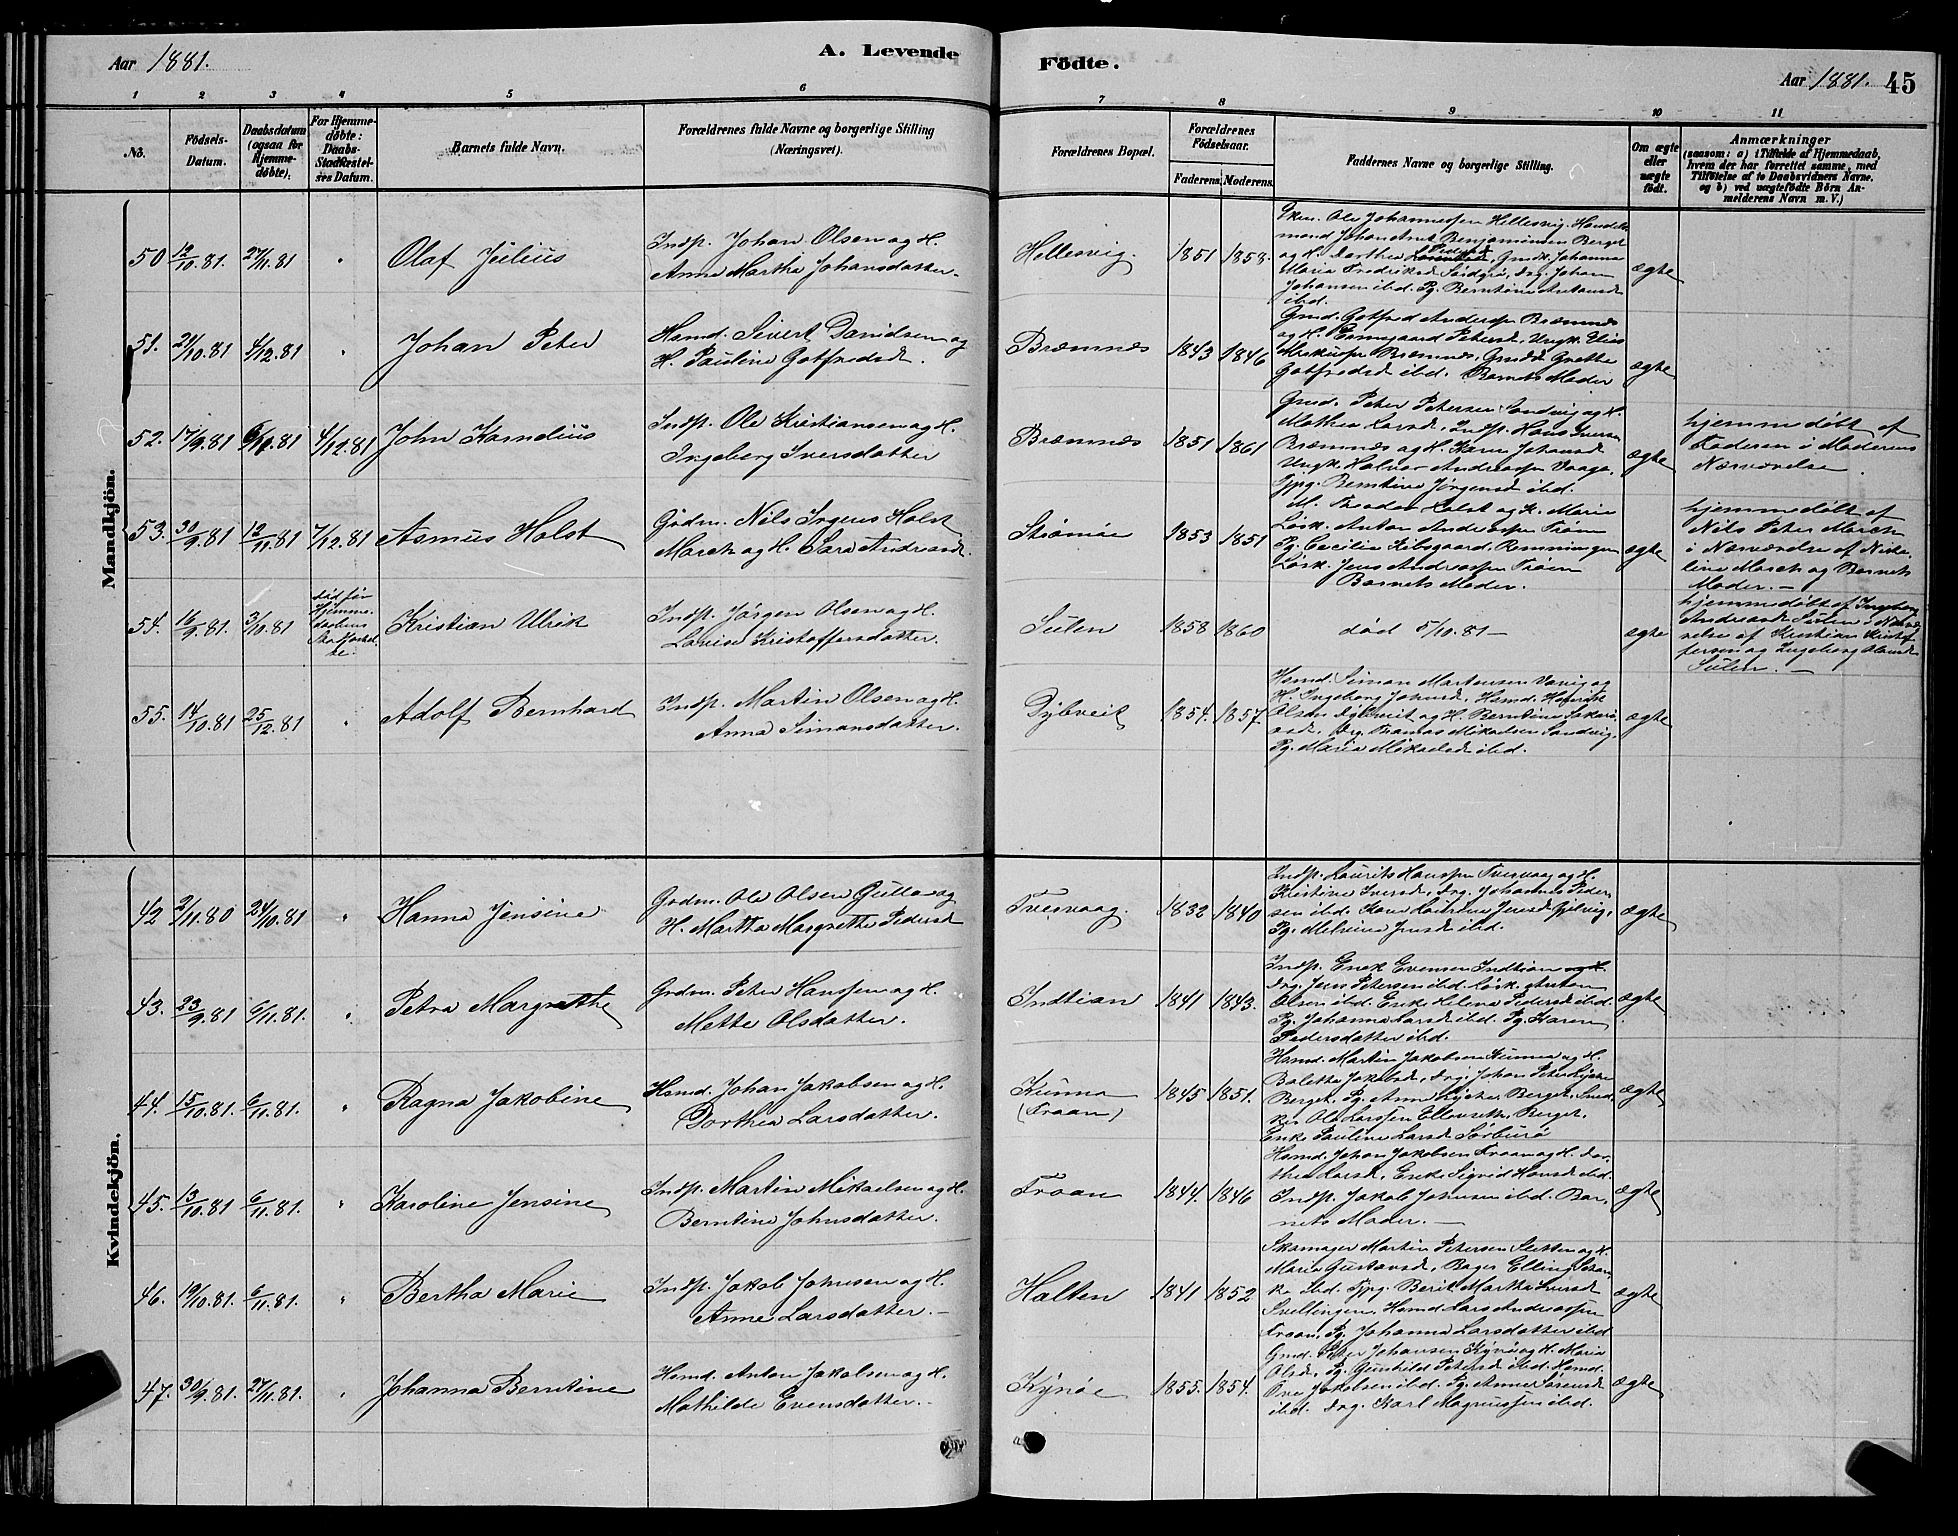 Aar 1881.
A. Levende
Födte.
Aar 1881. 45
1 2 3 4 5 6 7 8 9 10 11
No.
Födsels-Datum.
Daabsdatum (ogsaa for Hjemme-døbte).
For Hjemme-døbte: Daabs-Stadfæstel-ses Datum.
Barnets fulde Navn.
Forældrenes fulde Navne og borgerlige Stilling (Næringsvei).
Forældrenes Bopæl.
Forældrenes Födselsaar.
Faderens. Moderens.
Faddernes Navne og borgerlige Stilling.
Om ægte eller uægte født.
Anmærkninger
(saasom: a) i Tilfælde af Hjemmedaab, hvem der har forrettet samme, med Tilföielse af to Daabsvidners Navne. og b) ved uægtefödte Börn An-melderens Navn m. V.)
Mandkjön.
50 12/10.81. 27/11.81 " Olaf Julius
Indp. Johan Olsen og H.
Anna Martha Johansdatter.
Hellesvig. 1851 1858.
Ole Johannessen Hellesvig. Handels
mand Johan Arnt Benjaminsen Berget
og H. Dorthea Gmdk. Johanna
Maria Fredriksd Sördyrö, Drg. Johan
Johansen ibd. Pg. Berntine Antonsd
ibd.
ægte
51. 21/10.81 4/12.81 " Johan Peter
Hsmd. Sivert Davidsen og
H. Pauline Gotfredsd.
Bræmnes 1843 1846
Gmd. Gotfred Andersen Bræmnes
og H. Ermegaard Petersd. Ungk. Elias
Bræmnes, Grethe
Gotfredsd ibd. Barnets Moder
ægte
52. 17/9.81 4/12.81 John Kornelius
Indp. Ole Kristiansen og H.
Ingeborg Iversdatter
Bræmnes 1851 1861
Gmd. Peter Petersen Sandvig og H.
Mathea Larsd, Indp. Hans Iversen
Bræmnes og H. Karen Johansd
Ungk. Halvor Andreassen Vaage,
Tjpg. Berntine Jörgensd ibd.
ægte
hjemmedöbt af
Faderen i Moderens
Nærværelse.
53. 30/9.81 12/11.81 7/12.81 Asmus Holst
Grdm. Nils Irgens Holst
March og H. Sara Andreasd.
Strömöe 1853 1851
Holst og H. Maria
Lösk. Anton Andreassen Tröen
Pg. Cecilia Kibsgaard, Remningen
Lösk. Jens Andreassen Tröen
Barnets Moder.
ægte
hjemmedöbt af
Nils Peter March
i Nærværelse af
March og Barnets
Moder. –
54. 16/9.81. 3/10.81
död för
Hjemme-
daabens
Kristian Ulrik
Indp. Jörgen Olsen og H.
Lovise Kristoffersdatter.
Sulen 1858 1860
död 5/10.81 –
ægte
hjemmedöbt af Ingeborg
Andreasd. Sulen i Nærvæ-
relse af Kristian Kristof
fersen og Ingeborg Olausd
Sulen. –
55. 14/10.81 25/12.81 " Adolf Bernhard
Indp. Martin Olsen og H.
Anna Simonsdatter.
Dybveit 1854. 1857.
Hsmd. Simon Martinsen Varvig og
H. Ingeborg Johnsd, Hsmd. Henrik
Olsen Dybveit og H. Berntine Sakari-
asd, Drg. Mikaelsen Sandvig,
Pg. Maria Mikaelsd ibd.
ægte
Kvindekjön.
42 2/11.80 24/10.81 " Hanna Jensine
Grdm. Ole Olsen Gutta og
H. Martha Margrethe Pedersd
Tvervaag. 1832 1840
Indp. Laurits Hanssen Tvervaag og H.
Kristine Iversd, Drg. Johannes Peder-
sen ibd. Kone Jensd Gjelvig,
Pg. Melvine Jensd ibd.
ægte
43. 23/9.81 6/11.81. " Petra Margrethe
Grdm. Peter Hanssen og H.
Mette Olsdatter.
Indtian 1841 1843.
Indp. Enok Evensen Indtian og H.
Drg. Jens Petersen ibd. Lösk. Anton
Olsen ibd. Enke Helena Pedersd ibd.
Pg. Johanna Larsd ibd. Pg. Karen
Pedersdatter ibd.
ægte
44. 15/10.81. 6/11.81. " Ragna Jakobine
Hsmd. Johan Jakobsen og H.
Dorthea Larsdatter.
Kunna
(Froan)
1845 1851.
Hsmd. Martin Jakobsen Kunna og H.
Baletta Jakobsd, Drg. Johan Peter
Berget, Pg. Anna Berget, Smed
Ole Larssen Berget,
Enke Pauline Larsd Sörburö
ægte
45. 13/10.81 6/11.81. " Karoline Jensine
Indp. Martin Mikaelsen og H.
Berntine Johnsdatter.
Froan 1844. 1846
Hsmd. Johan Jakobsen Froan og H. Dor-
thea Larsd, Enke Sigrid Hansd ibd.
Indp. Jakob Johnsen ibd. Bar-
nets Moder. –
ægte
46. 19/10.81. 6/11.81. " Bertha Marie
Indp. Jakob Johnsen og H.
Anne Larsdatter. –
Halten 1841 1852
Skomager Martin Petersen Sletten og H.
Maria Gustavsd, Bager Elling
ibd. Tjpg. Berit Martha Iversd
Svellingen, Hsmd Lars Andreassen
Froan, Pg. Johanna Larsdatter ibd
ægte
47. 30/9.81. 27/11.81. " Johanna Berntine
Hsmd. Anton Jakobsen og H.
Mathilde Evensdatter.
Kynöe 1855. 1854.
Gmd. Peter Johansen Kynö og H. Maria
Olsd, Pg. Gunhild Petersd ibd. Hsmd.
Ove Jakobsen ibd. Pg. Anne Sörensd
ibd. Drg. Karl Magnussen ibd.
ægte